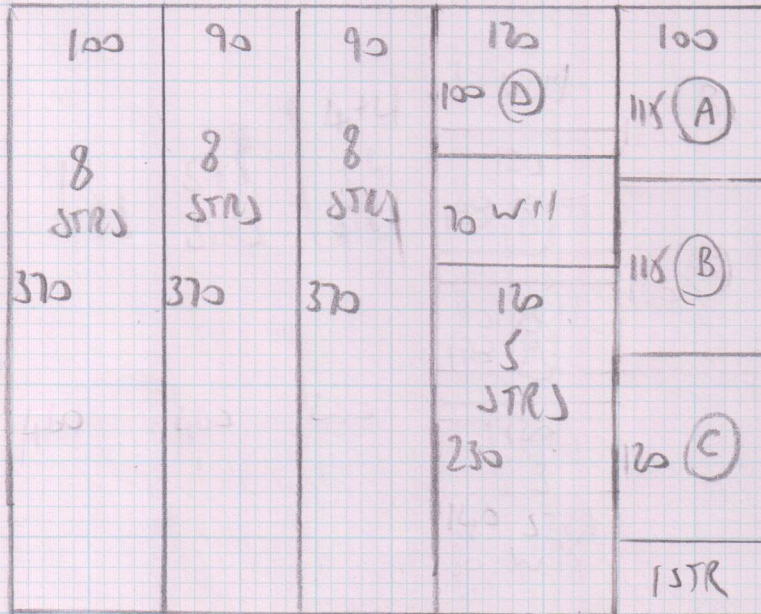 100
8
STRS
370
90
8
STRS
370
90
8
STRS
370
120
100 D
70
120
5
STRS
230
100
115 A
115 B
120 C
1 STR